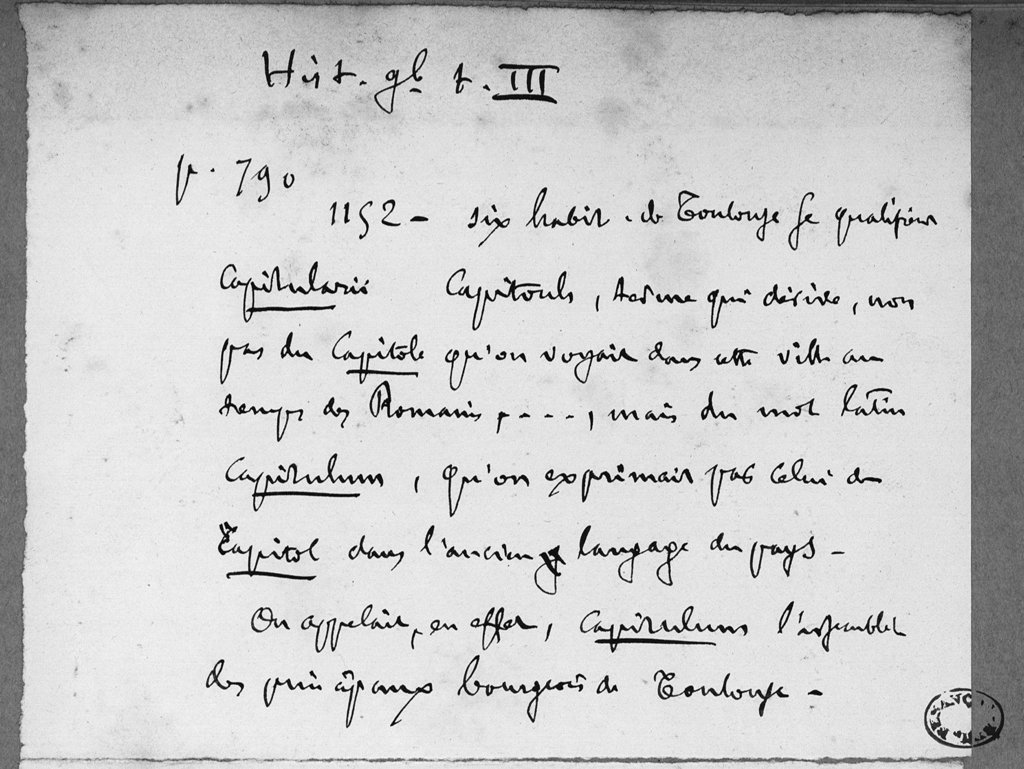 Hist. gl. t. III
p. 790
1152 - six habit. de Toulouse se qualifient
Capitularii Capitouls, terme qui dérive, non
pas du Capitole qu'on voyait dans cette ville au
temps des Romains, ...., mais du mot latin
Capitulum, qu'on exprimait par celui de
Capitol dans l'ancien langage du pays -
On appelait, en effet, Capitulum l'assemblée
des principaux bourgeois de Toulouse -